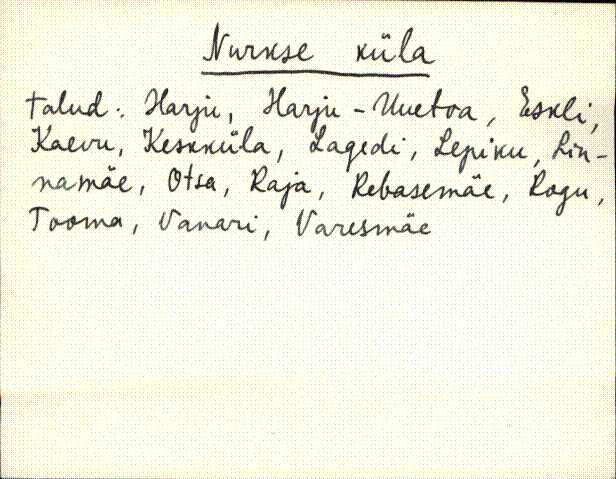 Nurkse küla
Talud: Harju, Harju-Uuetoa, Eskli,
Kaevu, Keskküla, Lagedi, Lepiku, Lin-
namäe, Otsa, Raja, Rebasemäe, Rogu,
Tooma, Vanari, Varesmäe